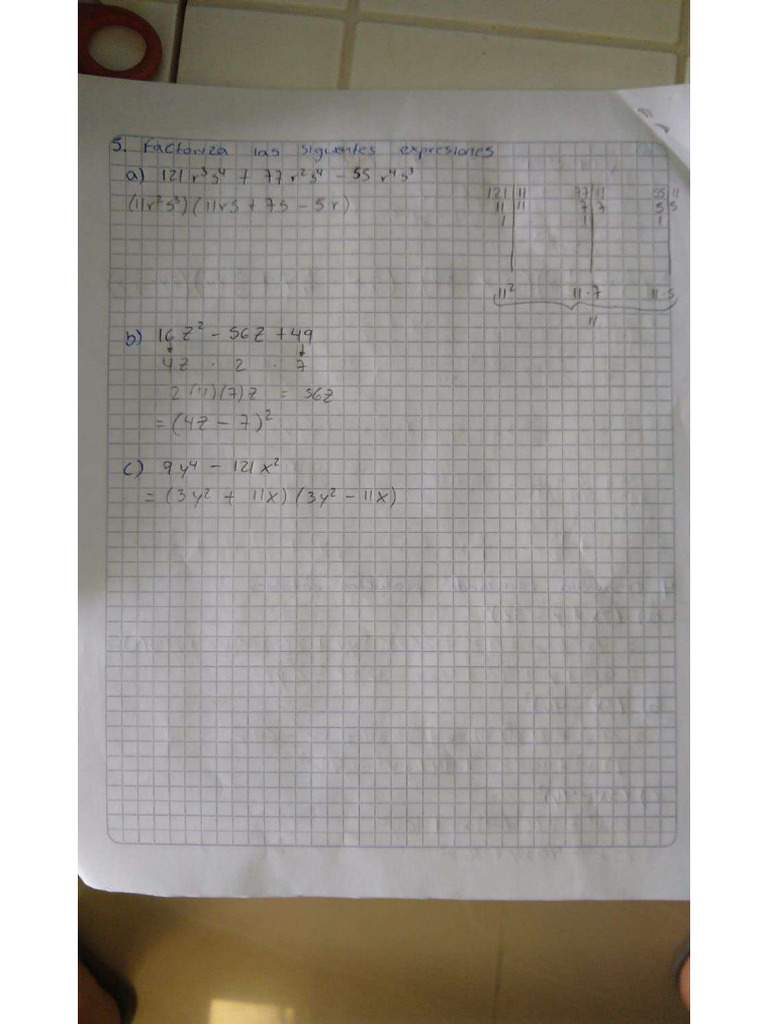 5. Factoriza las siguientes expresiones
a) 121 r³s⁴ + 77 r²s⁴ - 55 r⁴s³
(11r²s³) (11rs + 7s - 5r)
121 | 11 77 | 11 55 | 11
11 | 11 7 | 7 5 | 5
1 1 1
11² 11·7 11·5
11
b) 16z² - 56z + 49
4z · 2 · 7
2 (4)(7)z = 56z
= (4z - 7)²
c) 9y⁴ - 121x²
= (3y² + 11x) (3y² - 11x)